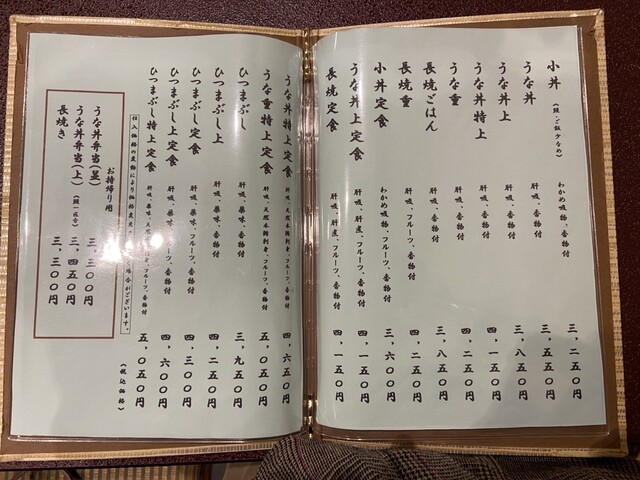 小丼 (鰻・ご飯少なめ) わかめ吸物、香物付 三、二五〇円
うな丼 肝吸、香物付 三、五五〇円
うな丼上 肝吸、香物付 三、八五〇円
うな丼特上 肝吸、香物付 四、一五〇円
うな重 肝吸、香物付 四、二五〇円
長焼ごはん 肝吸、香物付 三、八五〇円
長焼重 肝吸、フルーツ、香物付 四、二五〇円
小丼定食 わかめ吸物、フルーツ、香物付 三、六〇〇円
うな丼上定食 肝吸、肝煮、フルーツ、香物付 四、一五〇円
長焼定食 肝吸、肝煮、フルーツ、香物付 四、一五〇円
うな丼特上定食 肝吸、フルーツ、香物付 四、六五〇円
うな重特上定食 肝吸、フルーツ、香物付 五、〇五〇円
ひつまぶし 肝吸、薬味、香物付 三、九五〇円
ひつまぶし上 肝吸、薬味、香物付 四、二五〇円
ひつまぶし定食 肝吸、薬味、フルーツ、香物付 四、三〇〇円
ひつまぶし上定食 肝吸、薬味、フルーツ、香物付 四、六〇〇円
ひつまぶし特上定食 肝吸、薬味、フルーツ、香物付 五、〇五〇円
(税込価格)
仕入価格の変動により価格変更 場合がございます。
お持帰り用
うな丼弁当(並) 三、三〇〇円
うな丼弁当(上) 三、四五〇円
長焼き (鰻一疋分) 三、三〇〇円